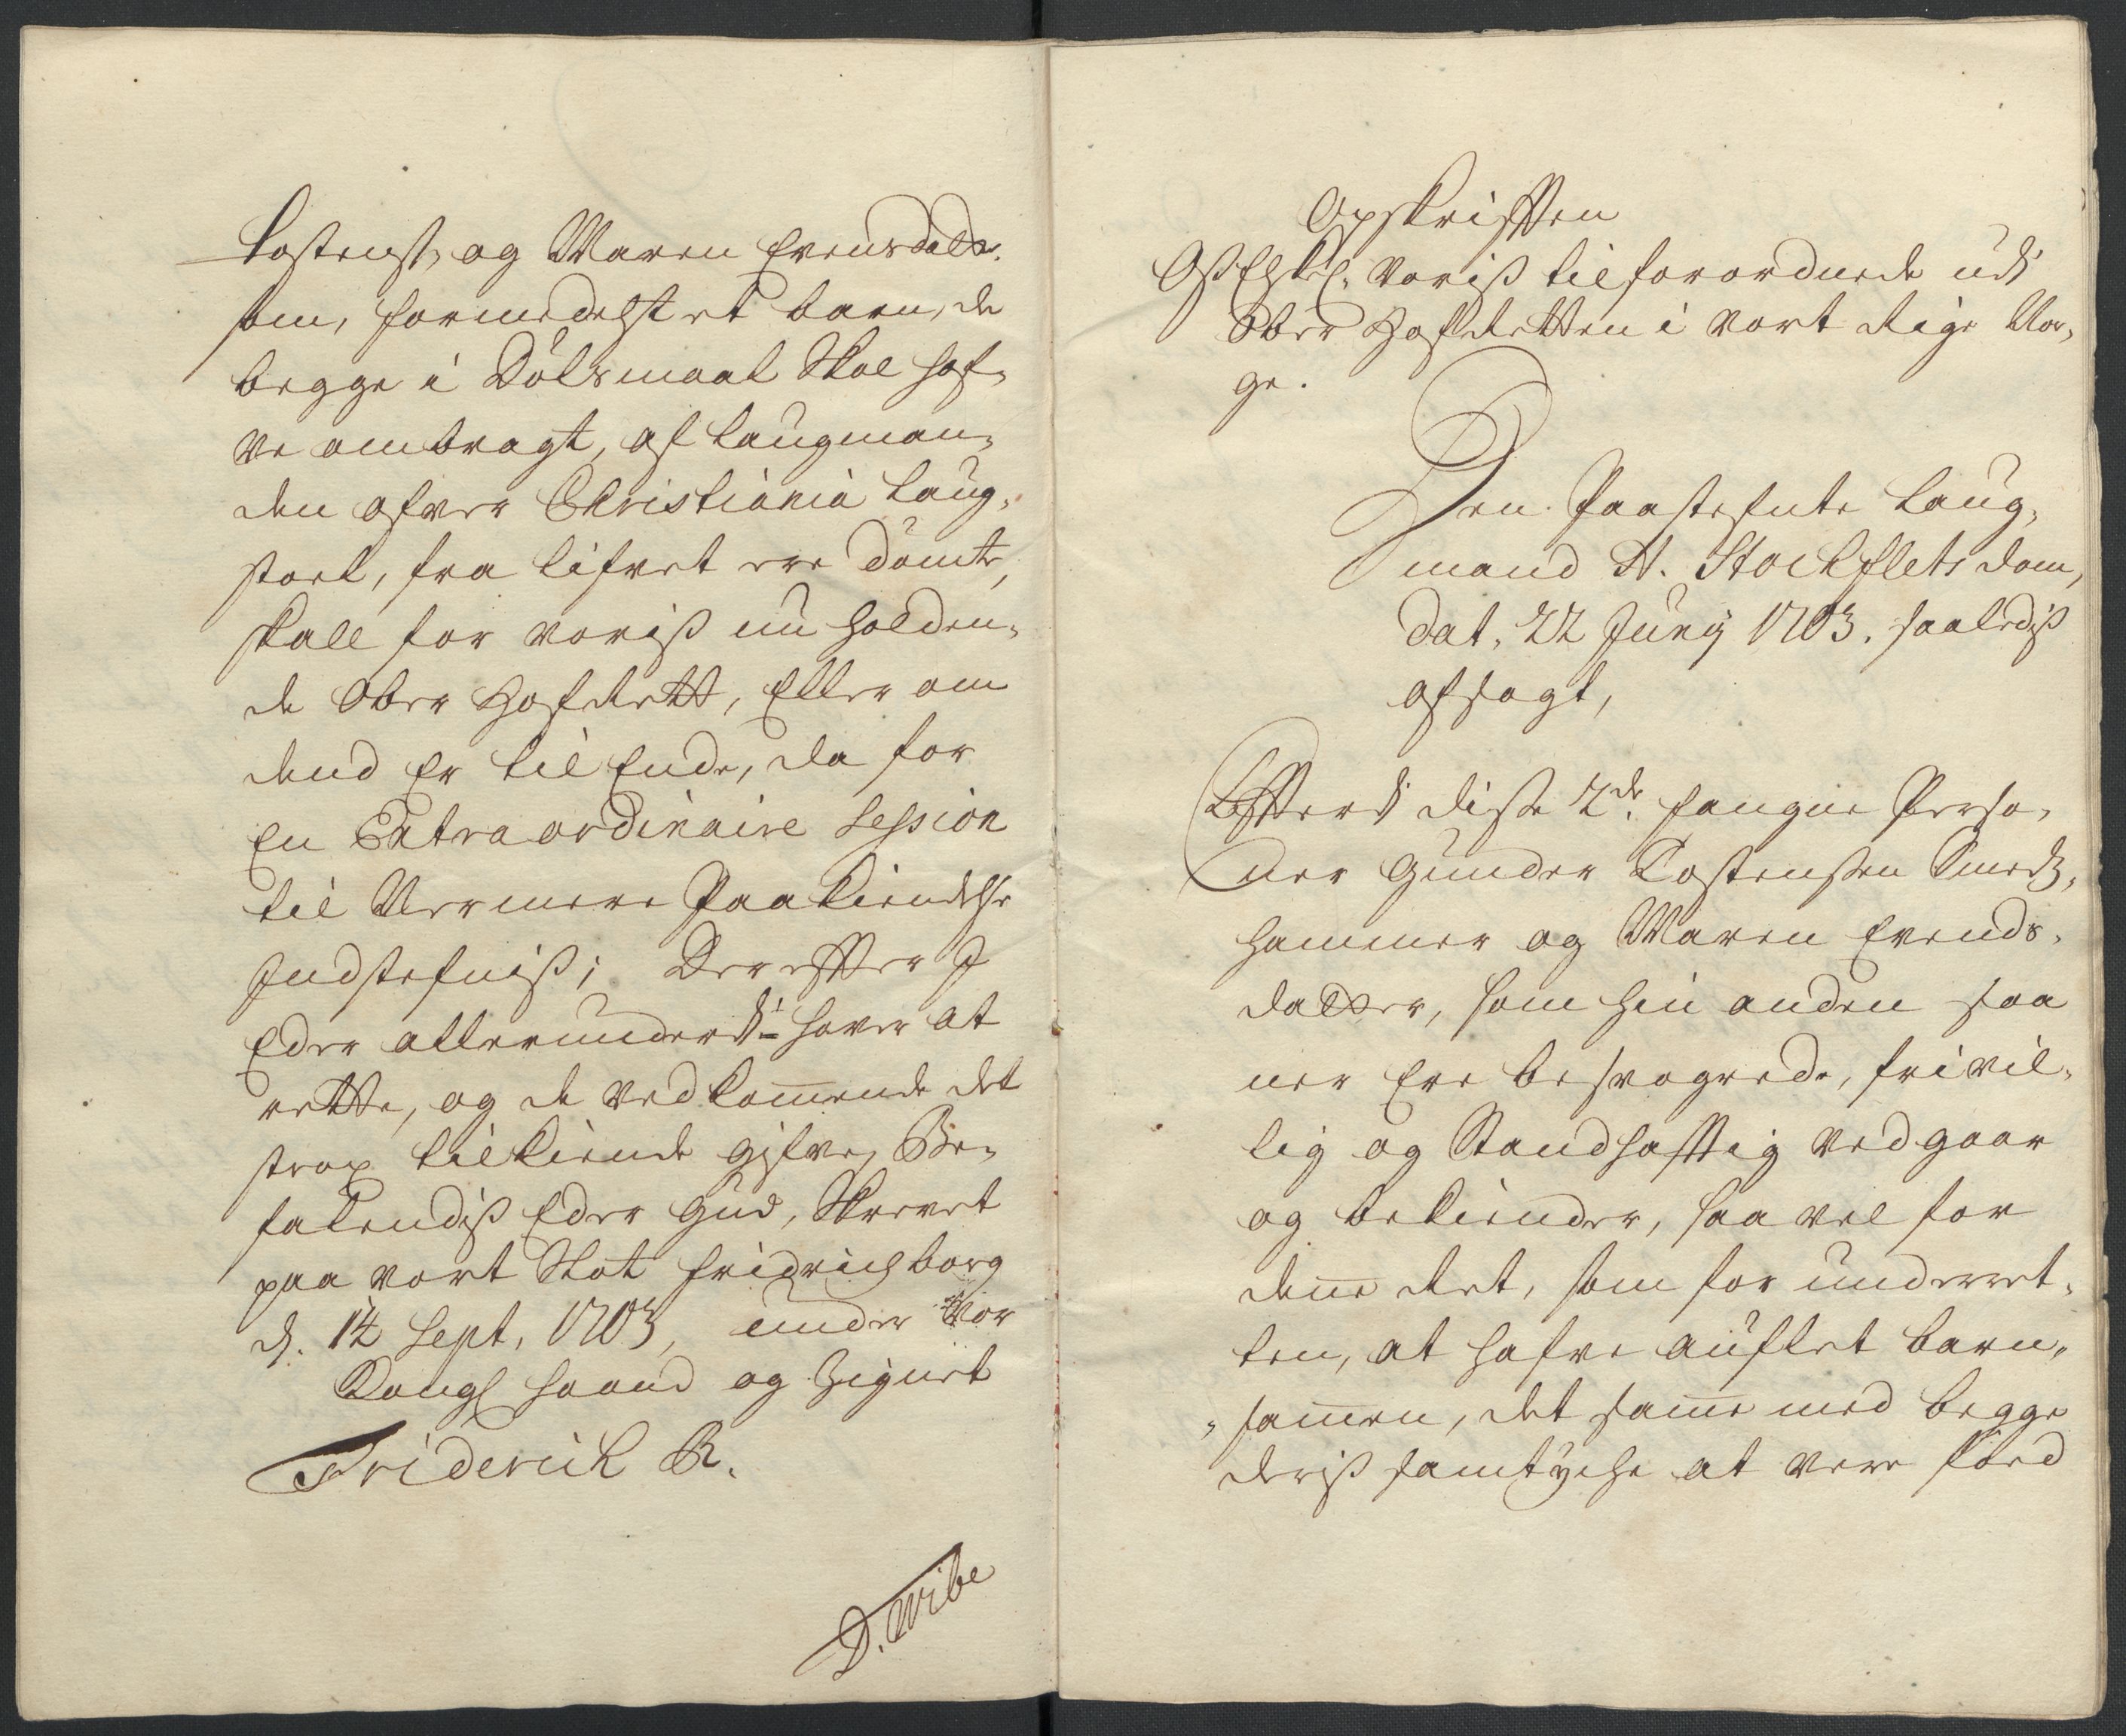 Tostensß, og Maren Evensdatr.
som, formedelst et barn, de
begge i Dølsmaal skal haf„
ve ombragt, af Laugman„
den ofver Christiania Laug„
stoel, fra lifvet ere dömte,
skall for voriß nu holden„
de Ober Hof Rett, Eller om
dend Er til Ende, da for
En Extraordinaire Session
til Nermere Paakiendelse
Indstefniß; Der effter I
Eder allerunderd: haver at
rette, og de vedkom̄ende det
strax tilkiende gifve, Be„
falendiß Eder Gud, Skrevet
paa vort Slot Fridrichsborg
d. 14 Sept. 1703, under Vor
Kongl haand og Signet
Friderich R.
D. Wibe
Opskrifften
Oß Elskel. voriß tilforordnede udi
Ober Hof Retten i vort Rige Nor„
ge.
Den Paastefnte Laug„
mand H. Stockflets dom,
dat. 22 Junij 1703. saalediß
afsagt,
Efterdi diße 2de. fangne Perso„
ner Gunder Tostensßen Smeds„
hammer og Maren Evends„
datter, som hin anden saa
ner Ere besvogrede, frivil„
lig og Standhafftig ved gaar
og bekiender, saa vel for
den̄e Ret, som for underret„
ten, at hafve auflet barn„
„sam̄en, det sam̄e med begge
deriß samtyche at vere fød